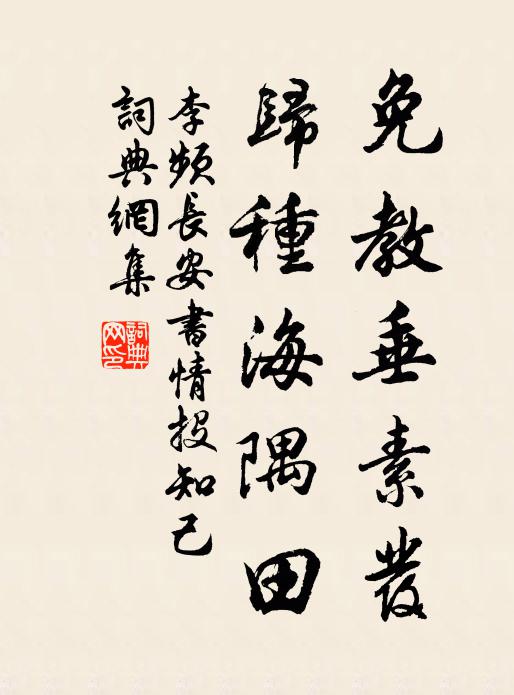 免教垂素發
歸種海隅田
李頻長安書情投知己
詞典網集
詞典
网印